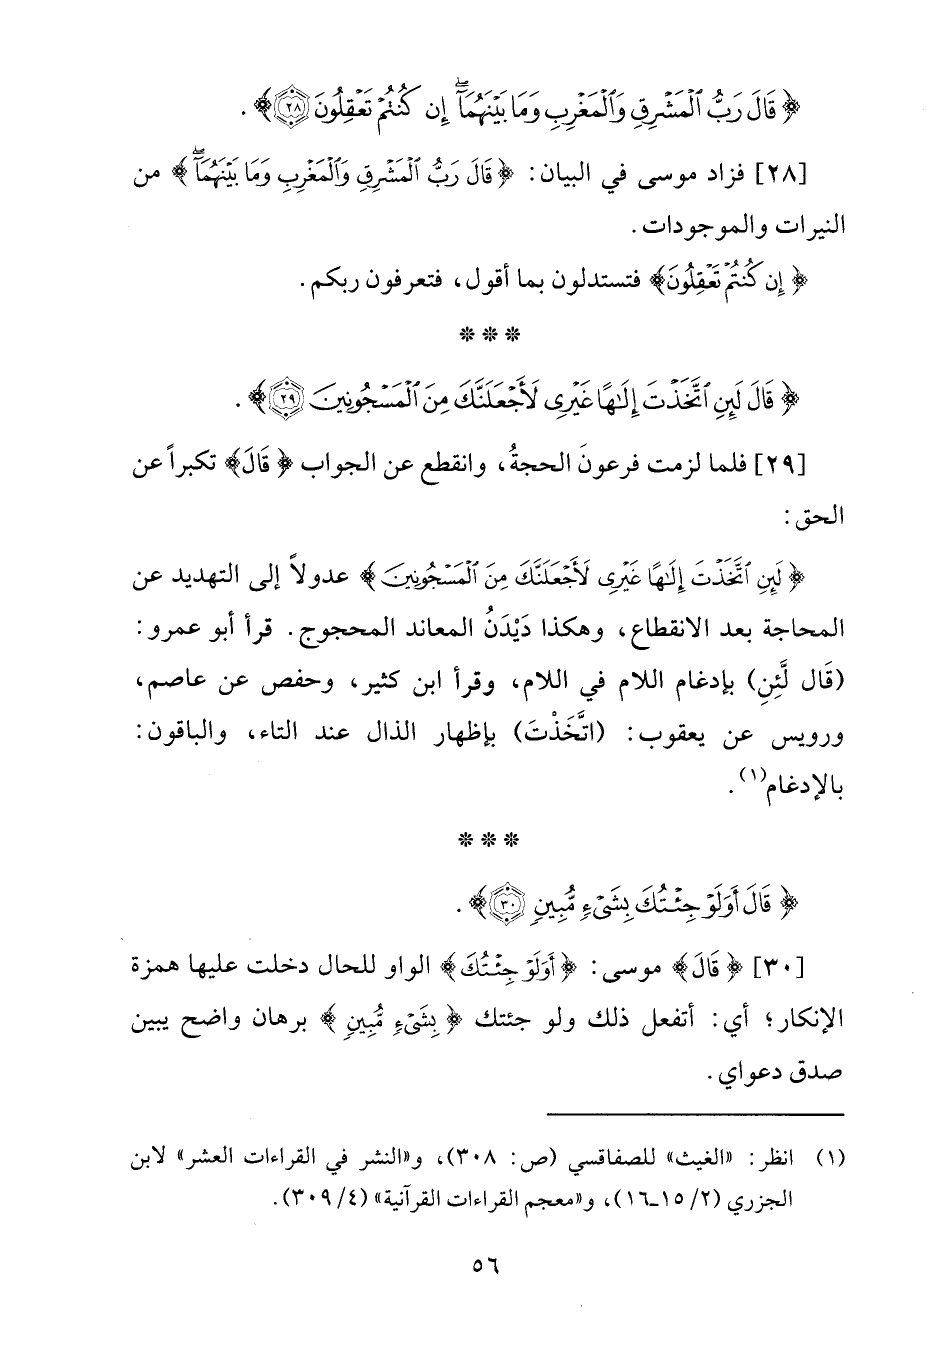 ﴿ قَالَ رَبُّ ٱلْمَشْرِقِ وَٱلْمَغْرِبِ وَمَا بَيْنَهُمَآ ۖ إِن كُنتُمْ تَعْقِلُونَ ۝٢٨ ﴾ .
[٢٨] فزاد موسى في البيان : ﴿ قَالَ رَبُّ ٱلْمَشْرِقِ وَٱلْمَغْرِبِ وَمَا بَيْنَهُمَآ ۖ ﴾ من
النيرات والموجودات .
﴿ إِن كُنتُمْ تَعْقِلُونَ ﴾ فتستدلون بما أقول ، فتعرفون ربكم .
* * *
﴿ قَالَ لَئِنِ ٱتَّخَذْتَ إِلَٰهًا غَيْرِى لَأَجْعَلَنَّكَ مِنَ ٱلْمَسْجُونِينَ ۝٢٩ ﴾ .
[٢٩] فلما لزمت فرعونَ الحجةُ ، وانقطع عن الجواب ﴿ قَالَ ﴾ تكبراً عن
الحق :
﴿ لَئِنِ ٱتَّخَذْتَ إِلَٰهًا غَيْرِى لَأَجْعَلَنَّكَ مِنَ ٱلْمَسْجُونِينَ ﴾ عدولاً إلى التهديد عن
المحاجة بعد الانقطاع ، وهكذا دَيْدَنُ المعاند المحجوج . قرأ أبو عمرو :
(قَال لَّئِنِ) بإدغام اللام في اللام ، وقرأ ابن كثير ، وحفص عن عاصم ،
ورويس عن يعقوب : (اتَّخَذْتَ) بإظهار الذال عند التاء ، والباقون :
بالإدغام(١) .
* * *
﴿ قَالَ أَوَلَوْ جِئْتُكَ بِشَىْءٍ مُّبِينٍ ۝٣٠ ﴾ .
[٣٠] ﴿ قَالَ ﴾ موسى : ﴿ أَوَلَوْ جِئْتُكَ ﴾ الواو للحال دخلت عليها همزة
الإنكار ؛ أي : أتفعل ذلك ولو جئتك ﴿ بِشَىْءٍ مُّبِينٍ ﴾ برهان واضح يبين
صدق دعواي .
(١) انظر : «الغيث» للصفاقسي (ص : ٣٠٨) ، و«النشر في القراءات العشر» لابن
الجزري (٢/ ١٥ـ١٦) ، و«معجم القراءات القرآنية» (٤/ ٣٠٩) .
٥٦